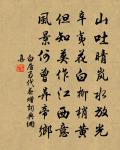 山吐晴嵐水放光
辛夷花白柳梢黃
但知莫作江西意
風景何曾异帝鄉
白居易代春贈詞典網